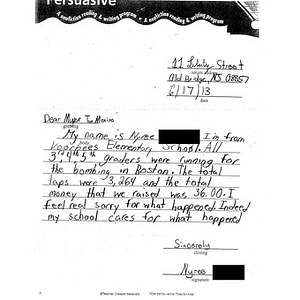 Persuasive
A nonfiction reading & writing program • A nonfiction reading & writing program
11 Liberty Street
return address
Old Bridge, NJ 08857
6/17/13
date
Dear Mayor Tom Menino
greeting
My name is Nyree I'm from
body
Voorhees Elementary School. All
3rd, 4th, 5th graders were running for
the bombing in Boston. The total
laps were 3,264 and the total
money that we raised was 36.00. I
feel real sorry for what happened. Indeed
my school cares for what happened
Sincerely
closing
Nyree
signing
©Teacher Created Materials
Write Time for Kids